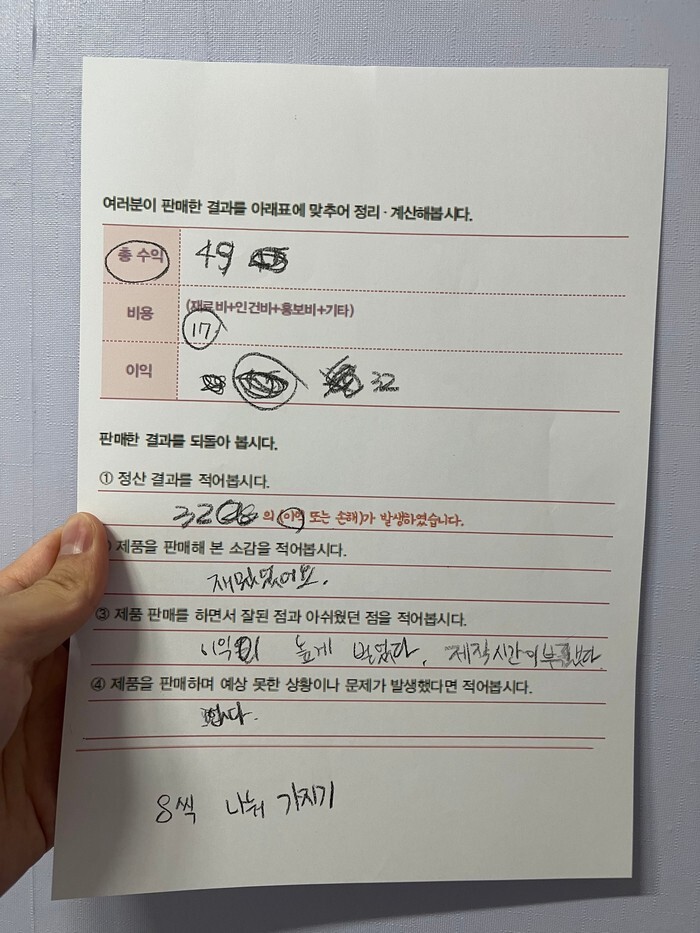 여러분이 판매한 결과를 아래표에 맞추어 정리·계산해봅시다.
총 수익 49
비용 (재료비+인건비+홍보비+기타)
17
이익 32
판매한 결과를 되돌아 봅시다.
① 정산 결과를 적어봅시다.
32 의 (이익 또는 손해)가 발생하였습니다.
제품을 판매해 본 소감을 적어봅시다.
재밌었어요.
③ 제품 판매를 하면서 잘된 점과 아쉬웠던 점을 적어봅시다.
이익이 높게 벌었다. 제작시간이
④ 제품을 판매하며 예상 못한 상황이나 문제가 발생했다면 적어봅시다.
없다.
8씩 나눠 가지기